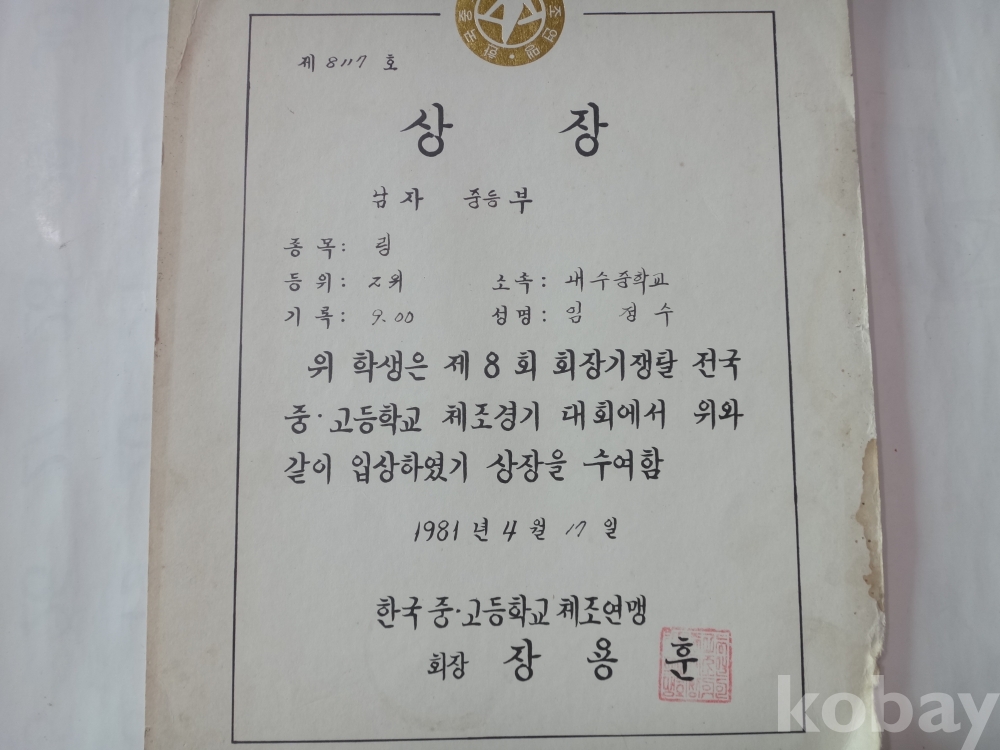 제 8117 호
상 장
남자 중등부
종목: 링
등위: 2위 소속: 내수중학교
기록: 9.00 성명: 임정수
위 학생은 제 8 회 회장기쟁탈 전국
중·고등학교 체조경기 대회에서 위와
같이 입상하였기 상장을 수여함
1981 년 4 월 17 일
한국 중·고등학교 체조연맹
회장 장 용 훈
kobay